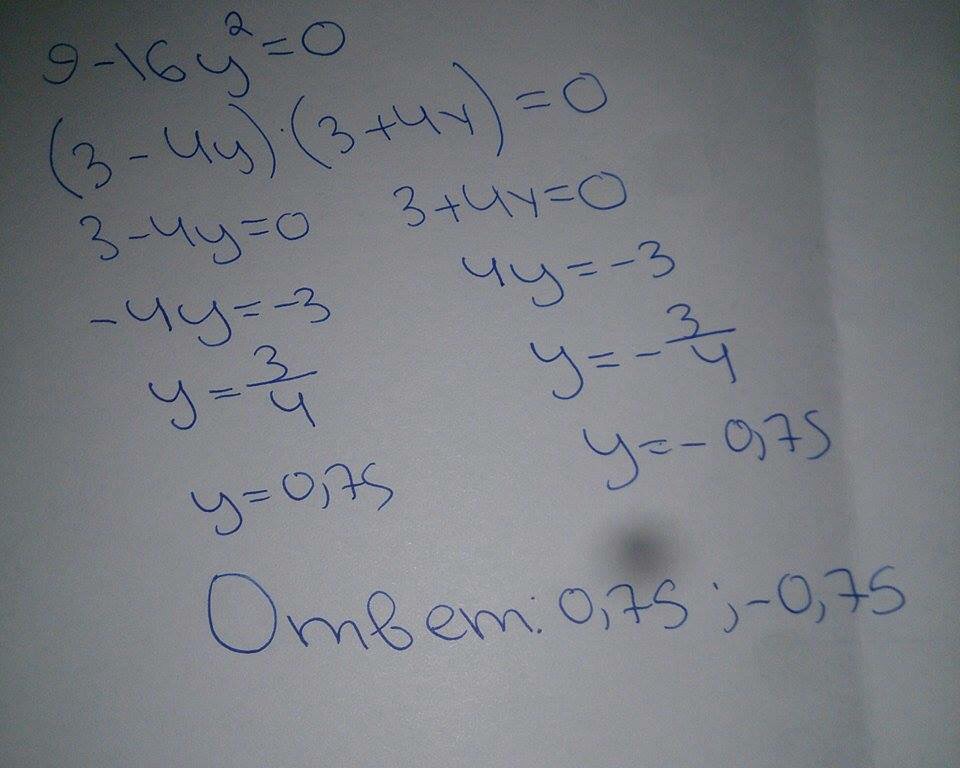 9-16y²=0
(3-4y)·(3+4y)=0
3-4y=0 3+4y=0
-4y=-3 4y=-3
y=3/4 y=-3/4
y=0,75 y=-0,75
Ответ: 0,75 ; -0,75